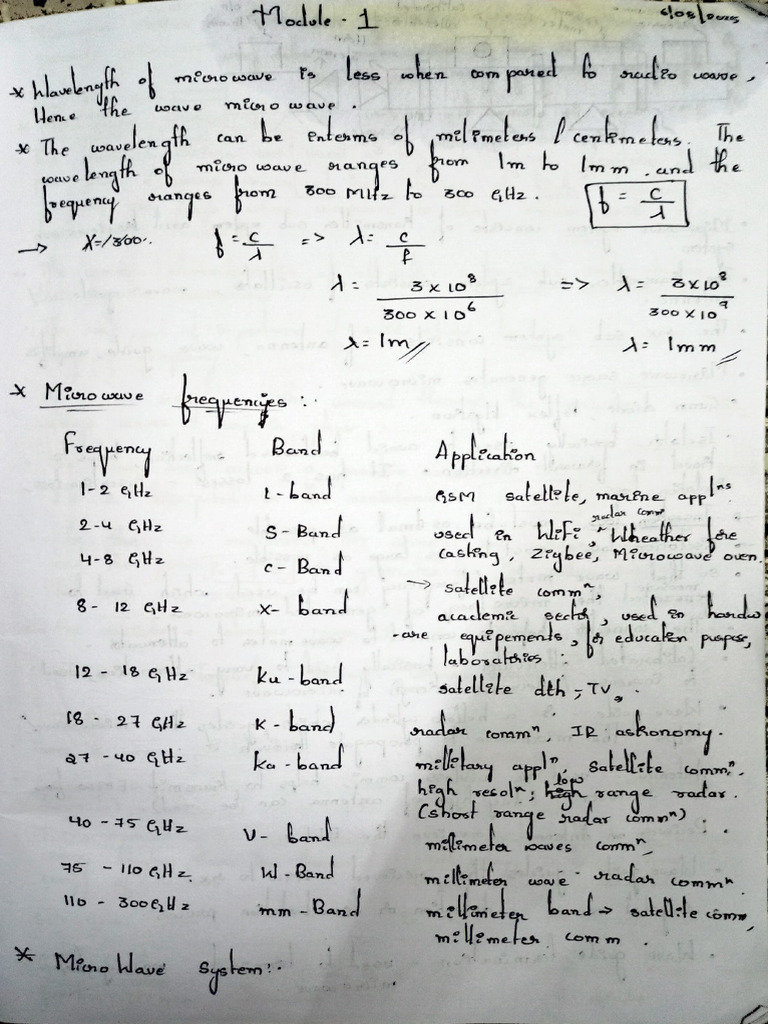 Module - 1
* Wavelength of microwave is less when compared to radio wave,
Hence the wave micro wave.
* The wavelength can be interms of milimeters / centimeters. The
wavelength of micro wave ranges from 1m to 1mm. and the
frequency ranges from 300 MHz to 300 GHz. f = c/λ
→ f = c/λ => λ = c/f
λ = 3 × 10⁸ / 300 × 10⁶ => λ = 3 × 10⁸ / 300 × 10⁹
λ = 1m // λ = 1mm //
* Microwave frequencies :-
Frequency Band Application
1-2 GHz L-band GSM satellite, marine applⁿˢ
radar commⁿ
2-4 GHz S-Band used in WiFi, Wheather fore
casting, Zigbee, Microwave oven.
4-8 GHz C-Band → satellite commⁿ,
8- 12 GHz X- band academic sector, used in hardw
-are equipements, for education purpose,
laboratories
12 - 18 GHz Ku-band satellite dth, TV,
18 - 27 GHz K-band radar commⁿ, IR astronomy.
27 -40 GHz Ka-band millitary applⁿ, satellite commⁿ,
high resolⁿ, low range radar.
(short range radar commⁿ).
40 -75 GHz V- band millimeter waves commⁿ,
75 - 110 GHz W-Band millimeter wave radar commⁿ
110 - 300GHz mm-Band millimeter band → satellite comm,
millimeter comm.
* Micro Wave System:-